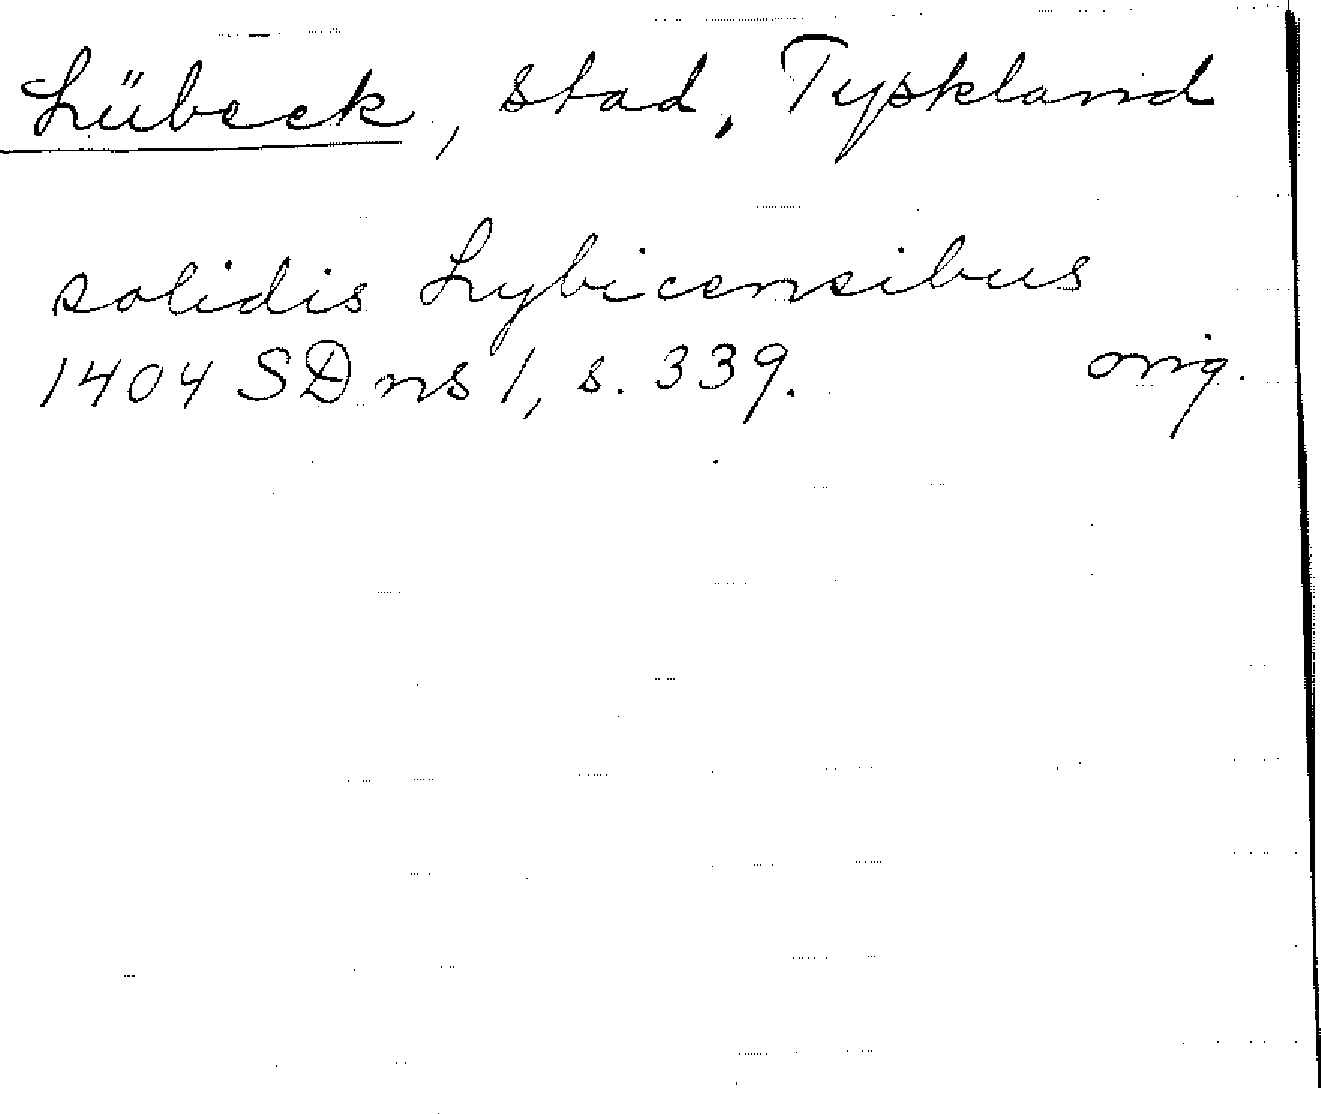 Lübeck, stad, Tyskland
solidis Lybicensibus
1404 SD ns 1, s. 339. orig.